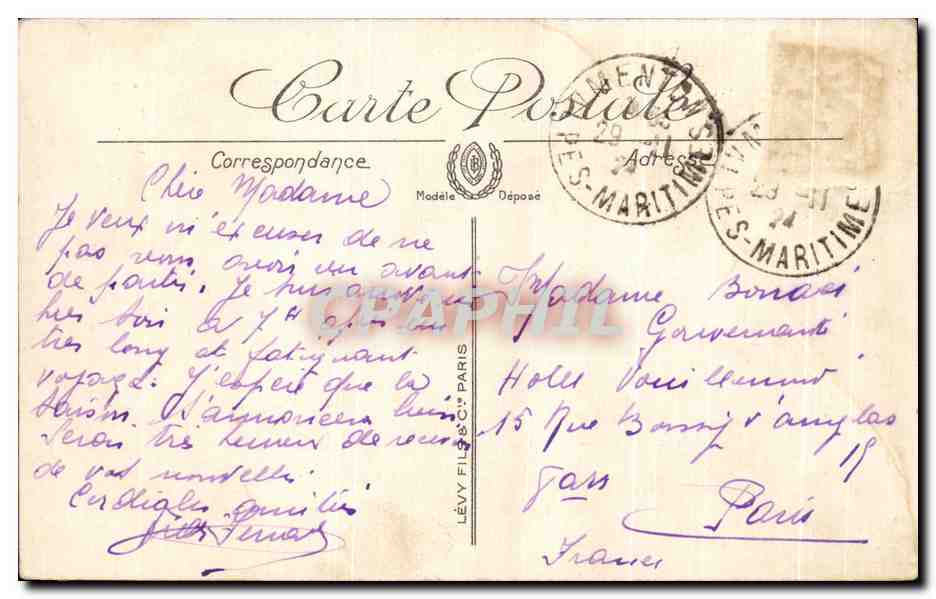 Carte Postale
Correspondance
Adresse
Modèle Déposé
MENTON
29 -11
24
PES-MARITIMES
29 -11
24
PES-MARITIME
Chère Madame
Je veux m'excuser de ne
pas vous avoir vu avant
de partir. Je suis
très soir à 7h après un
très long et fatiguant
voyage. J'espère que la
saison s'annoncera bien
Serai très heureux de recevoir
de vos nouvelles.
Cordiales amitiés
Madame
Gouvernante
Hotel Vouillemont
15 Rue Boissy d'anglas
15
Paris
France
LÉVY FILS & Cie PARIS
CPAPHIL